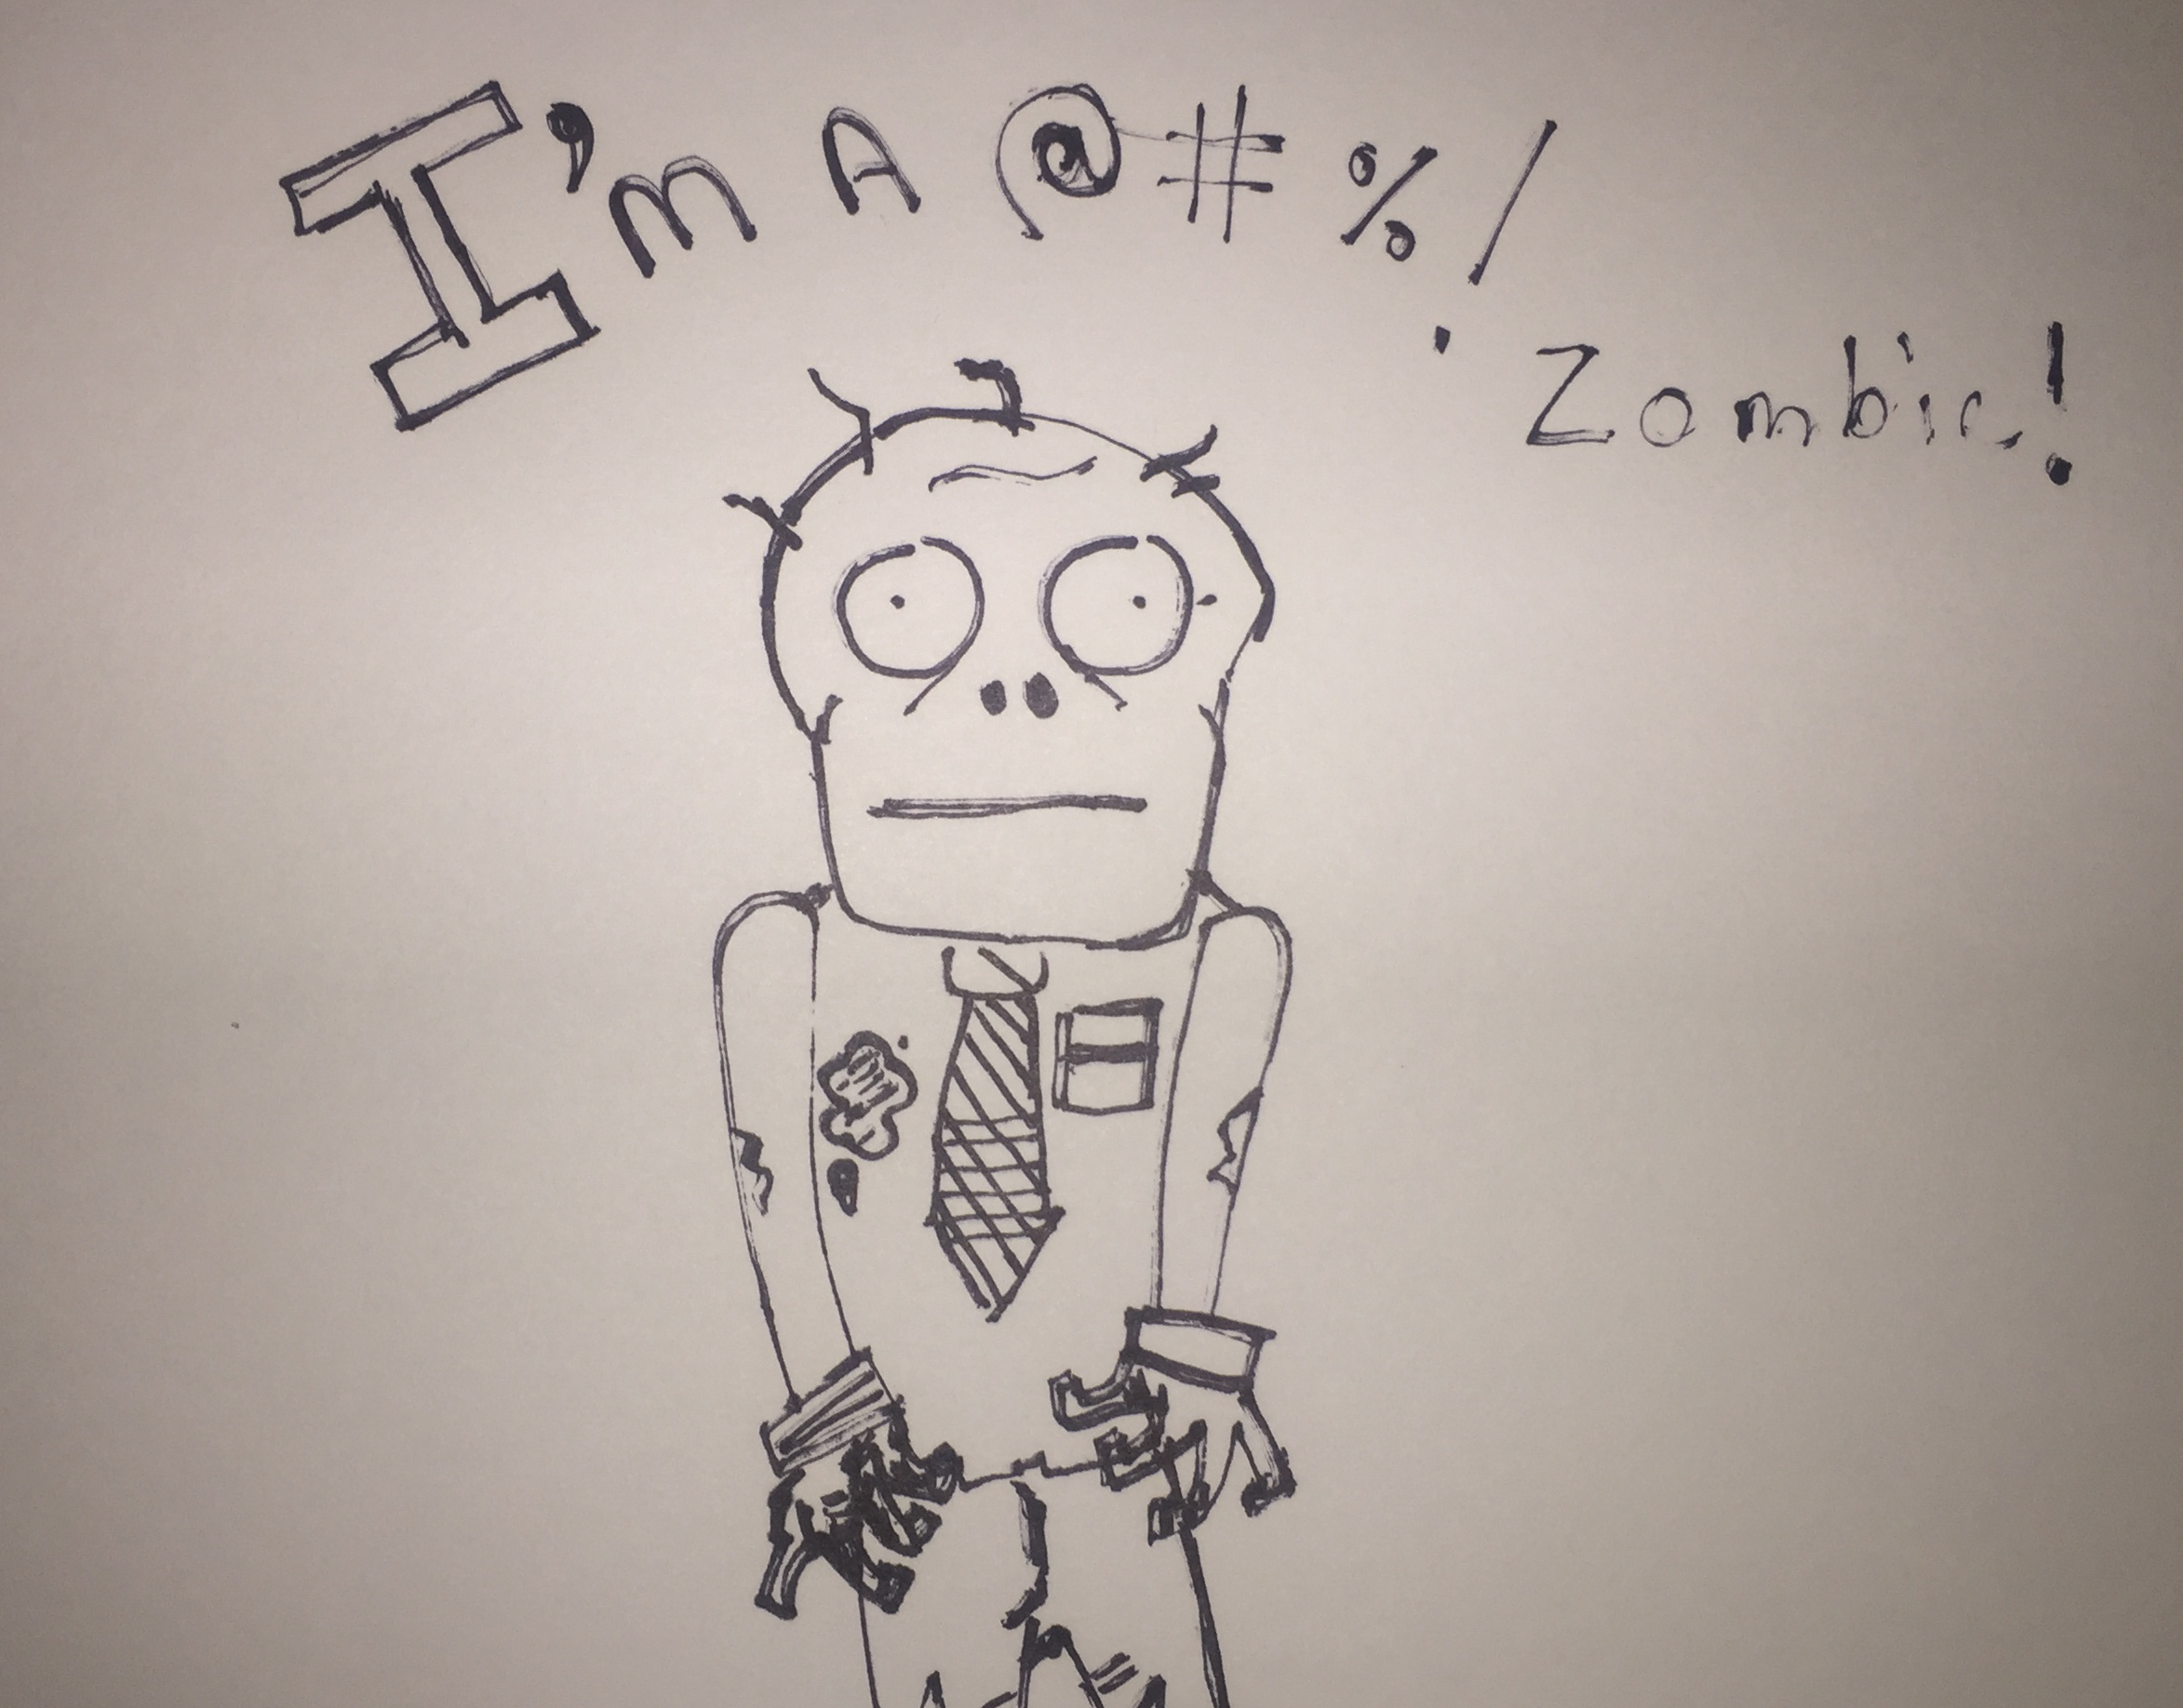 I'm A @#%!
Zombie!